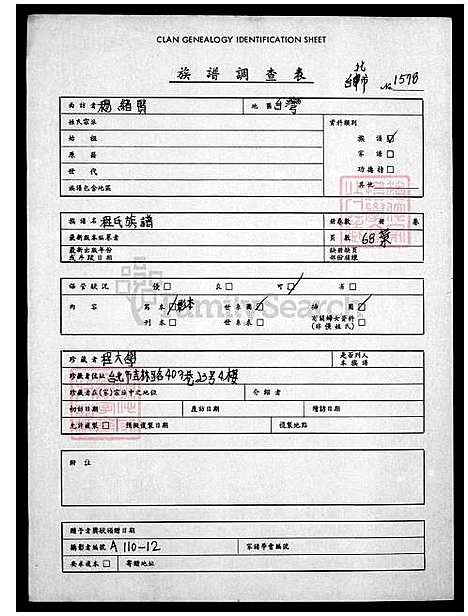 CLAN GENEALOGY IDENTIFICATION SHEET
族譜調查表
台北市
No 1578
面訪者 楊緒賢 地區 台灣
姓氏宗派 資料類別
始祖 族譜
原籍 家譜
世代 功德榜
族譜包含地區 其他
族譜名 程氏族譜 冊卷數 冊 卷
最新版本編纂者 頁數 68葉
最新出版年份 缺冊缺頁
或斤殘日期 部份損壞
保管狀況 優 良 可 劣
內容 寫本 影本 世系圖 插圖
刊本 世系表 有關婦女資料
(非僅姓氏)
FamilySearch
珍藏者 程大學 是否列入
本族譜
珍藏者住址 台北市吉林路409巷23号4樓
珍藏者在(家)宗族中之地位 介紹者
初訪日期 座訪日期 續訪日期
允許複製 預擬複製日期 複製地點
附註
贈予者獎狀頒贈日期
攝影者編號 A 110-12 家譜學會編號
要求複本 寄贈地址